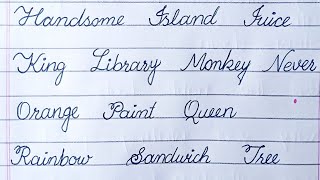 Handsome Island Juice
King Library Monkey Never
Orange Paint Queen
Rainbow Sandwich Tree